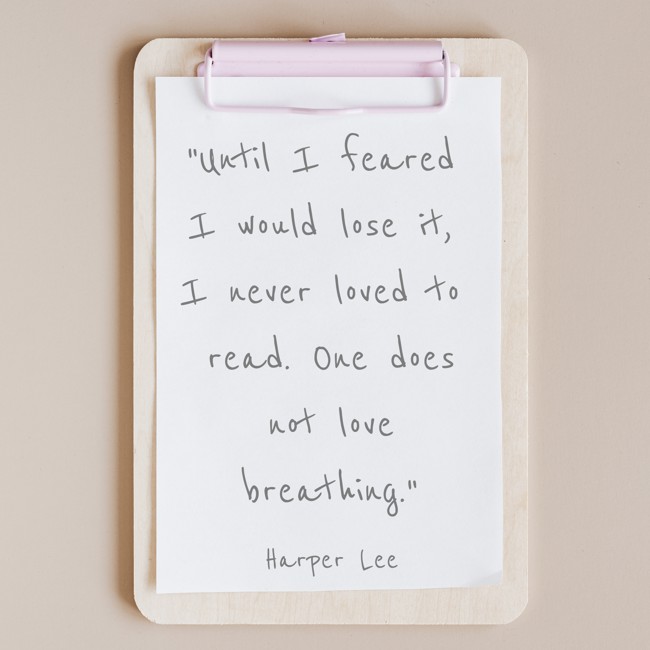 "Until I feared
I would lose it,
I never loved to
read. One does
not love
breathing."
Harper Lee